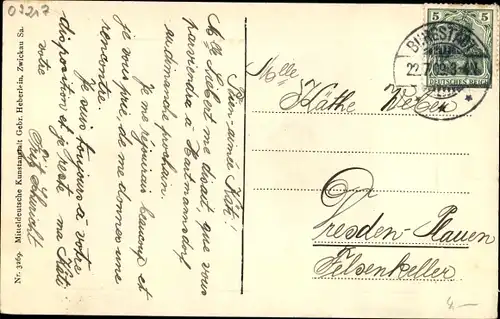 03217
Bien-aimée Käte!
Mlle Siebert me disait, que vous
parviendra à Hartmannsdorf
su dimanche prochain.
Je me réjouirais beaucoup et
je vous prie, de me donner une
rencontre.
Je suis toujours à votre
disposition et je reste ma Käte
votre
Fritz
Nr. 3269. Mitteldeutsche Kunstanstalt Gebr. Heberlein, Zwickau Sa.
5 5
DEUTSCHES REICH
22.7.09. 3-4N
Mlle
Käthe
Dresden-Plauen
Felsenkeller